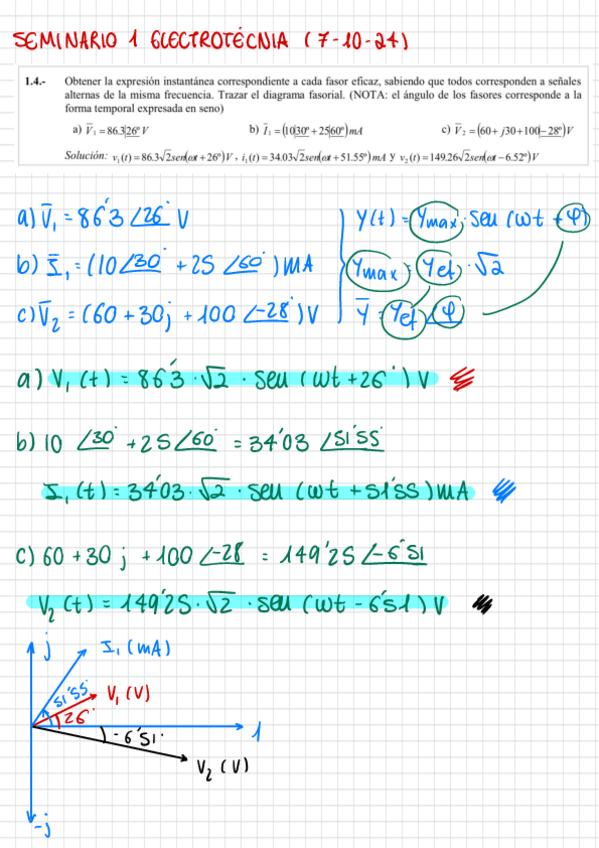 SEMINARIO 1 ELECTROTÉCNIA (7-10-24)
1.4.- Obtener la expresión instantánea correspondiente a cada fasor eficaz, sabiendo que todos corresponden a señales
alternas de la misma frecuencia. Trazar el diagrama fasorial. (NOTA: el ángulo de los fasores corresponde a la
forma temporal expresada en seno)
a) V̅₁ = 86.3|26° V b) I̅₁ = (10|30° + 25|60°) mA c) V̅₂ = (60 + j30 + 100|−28°) V
Solución: v₁(t) = 86.3√2sen(ωt + 26°) V , i₁(t) = 34.03√2sen(ωt + 51.55°) mA y v₂(t) = 149.26√2sen(ωt − 6.52°) V
a) V̅₁ = 86'3 ∠26° V
Y(t) = Ymax · sen (wt + φ)
b) I̅₁ = (10∠30° + 25 ∠60°) mA
Ymax = Yef · √2
c) V̅₂ = (60 + 30j + 100 ∠-28°) V
Y̅ = Yef ∠φ
a) V₁ (t) = 86'3 · √2 · sen (wt + 26°) V
b) 10 ∠30° + 25∠60° = 34'03 ∠51'55
I₁ (t) = 34'03 · √2 · sen (wt + 51'55) mA
c) 60 + 30 j + 100 ∠-28 = 149'25 ∠-6'51
V₂ (t) = 149'25 · √2 · sen (wt - 6'51) V
j
I₁ (mA)
51'55
V₁ (V)
26°
1
-6'51°
V₂ (V)
-j